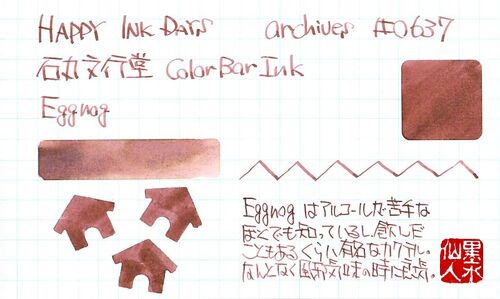 HAPPY INK DAYS archives #0637
石丸文行堂 Color Bar Ink
Eggnog
Eggnog はアルコールが苦手な
ぼくでも知っているし、飲んだ
こともあるくらい有名なカクテル。
なんとなく風邪気味の時に
墨水
仙人